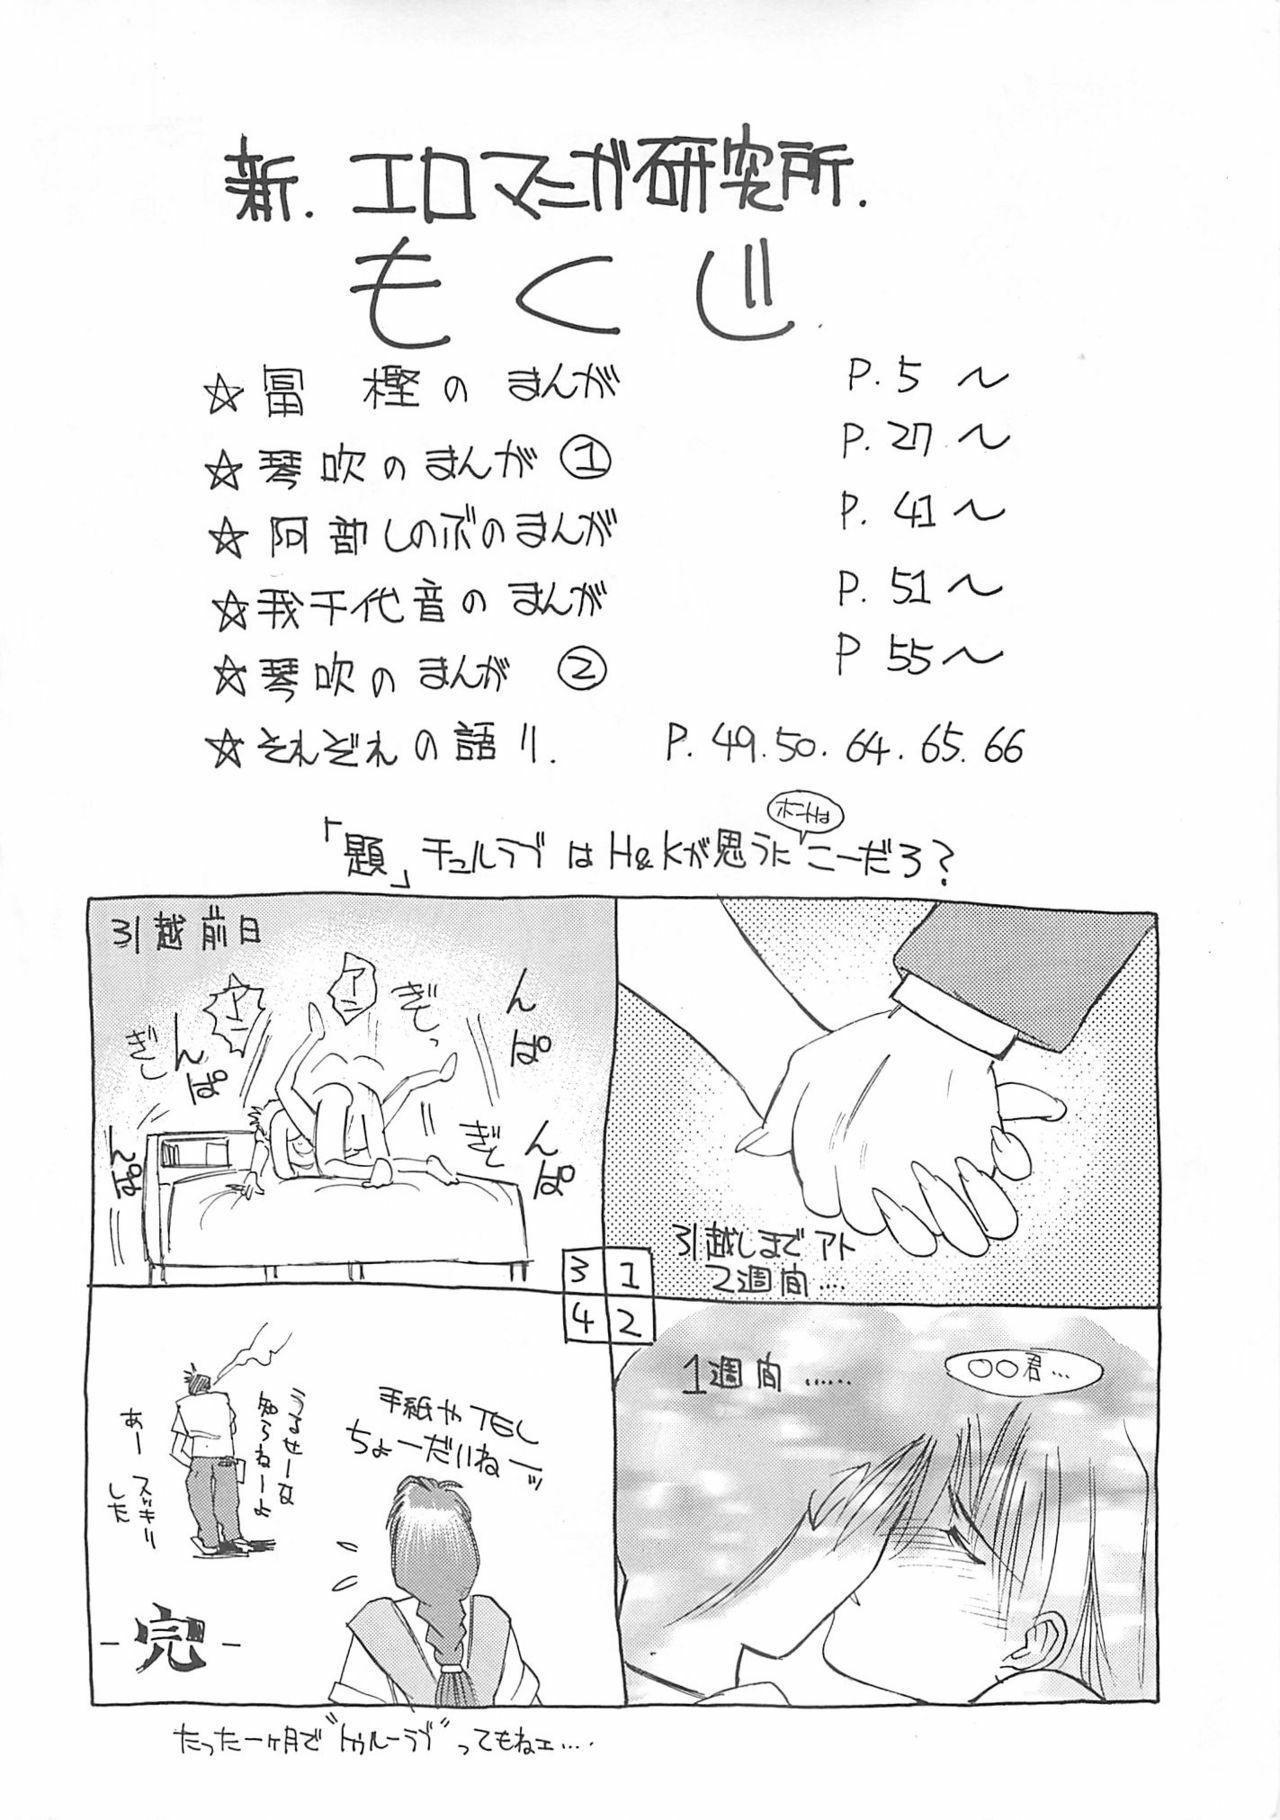 新.エロマニガ研究所.
もくじ
☆冨樫のまんが P.5〜
☆琴吹のまんが① P.27〜
☆阿部しのぶのまんが P.41〜
☆我千代音のまんが P.51〜
☆琴吹のまんが② P 55〜
☆それぞれの語り. P.49.50.64.65.66
「題」チュルラブはH&Kが思うにこーだろ?
ホントは
1
引越しまでアト
2週間….
2
1週間……
〇〇君…
3
引越前日
アン
アン
ぎしっ
ぎし
ぎし
んぱ
んぱ
んぱ
んぱ
4
手紙やTEL
ちょーだいねーッ
うるせーな
知らねーよ
あースッキリ
した
-完-
たった一ヶ月で"トゥルーラブ"ってもねェ….